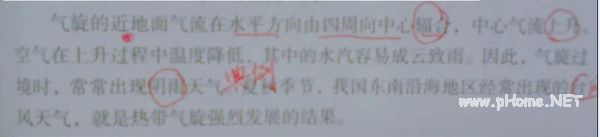 气旋的近地面气流在水平方向由四周向中心辐合，中心气流上升。
空气在上升过程中温度降低，其中的水汽容易成云致雨。因此，气旋过
境时，常常出现阴雨天气。夏秋季节，我国东南沿海地区经常出现的台
风天气，就是热带气旋强烈发展的结果。
典例
www.pHome.NET